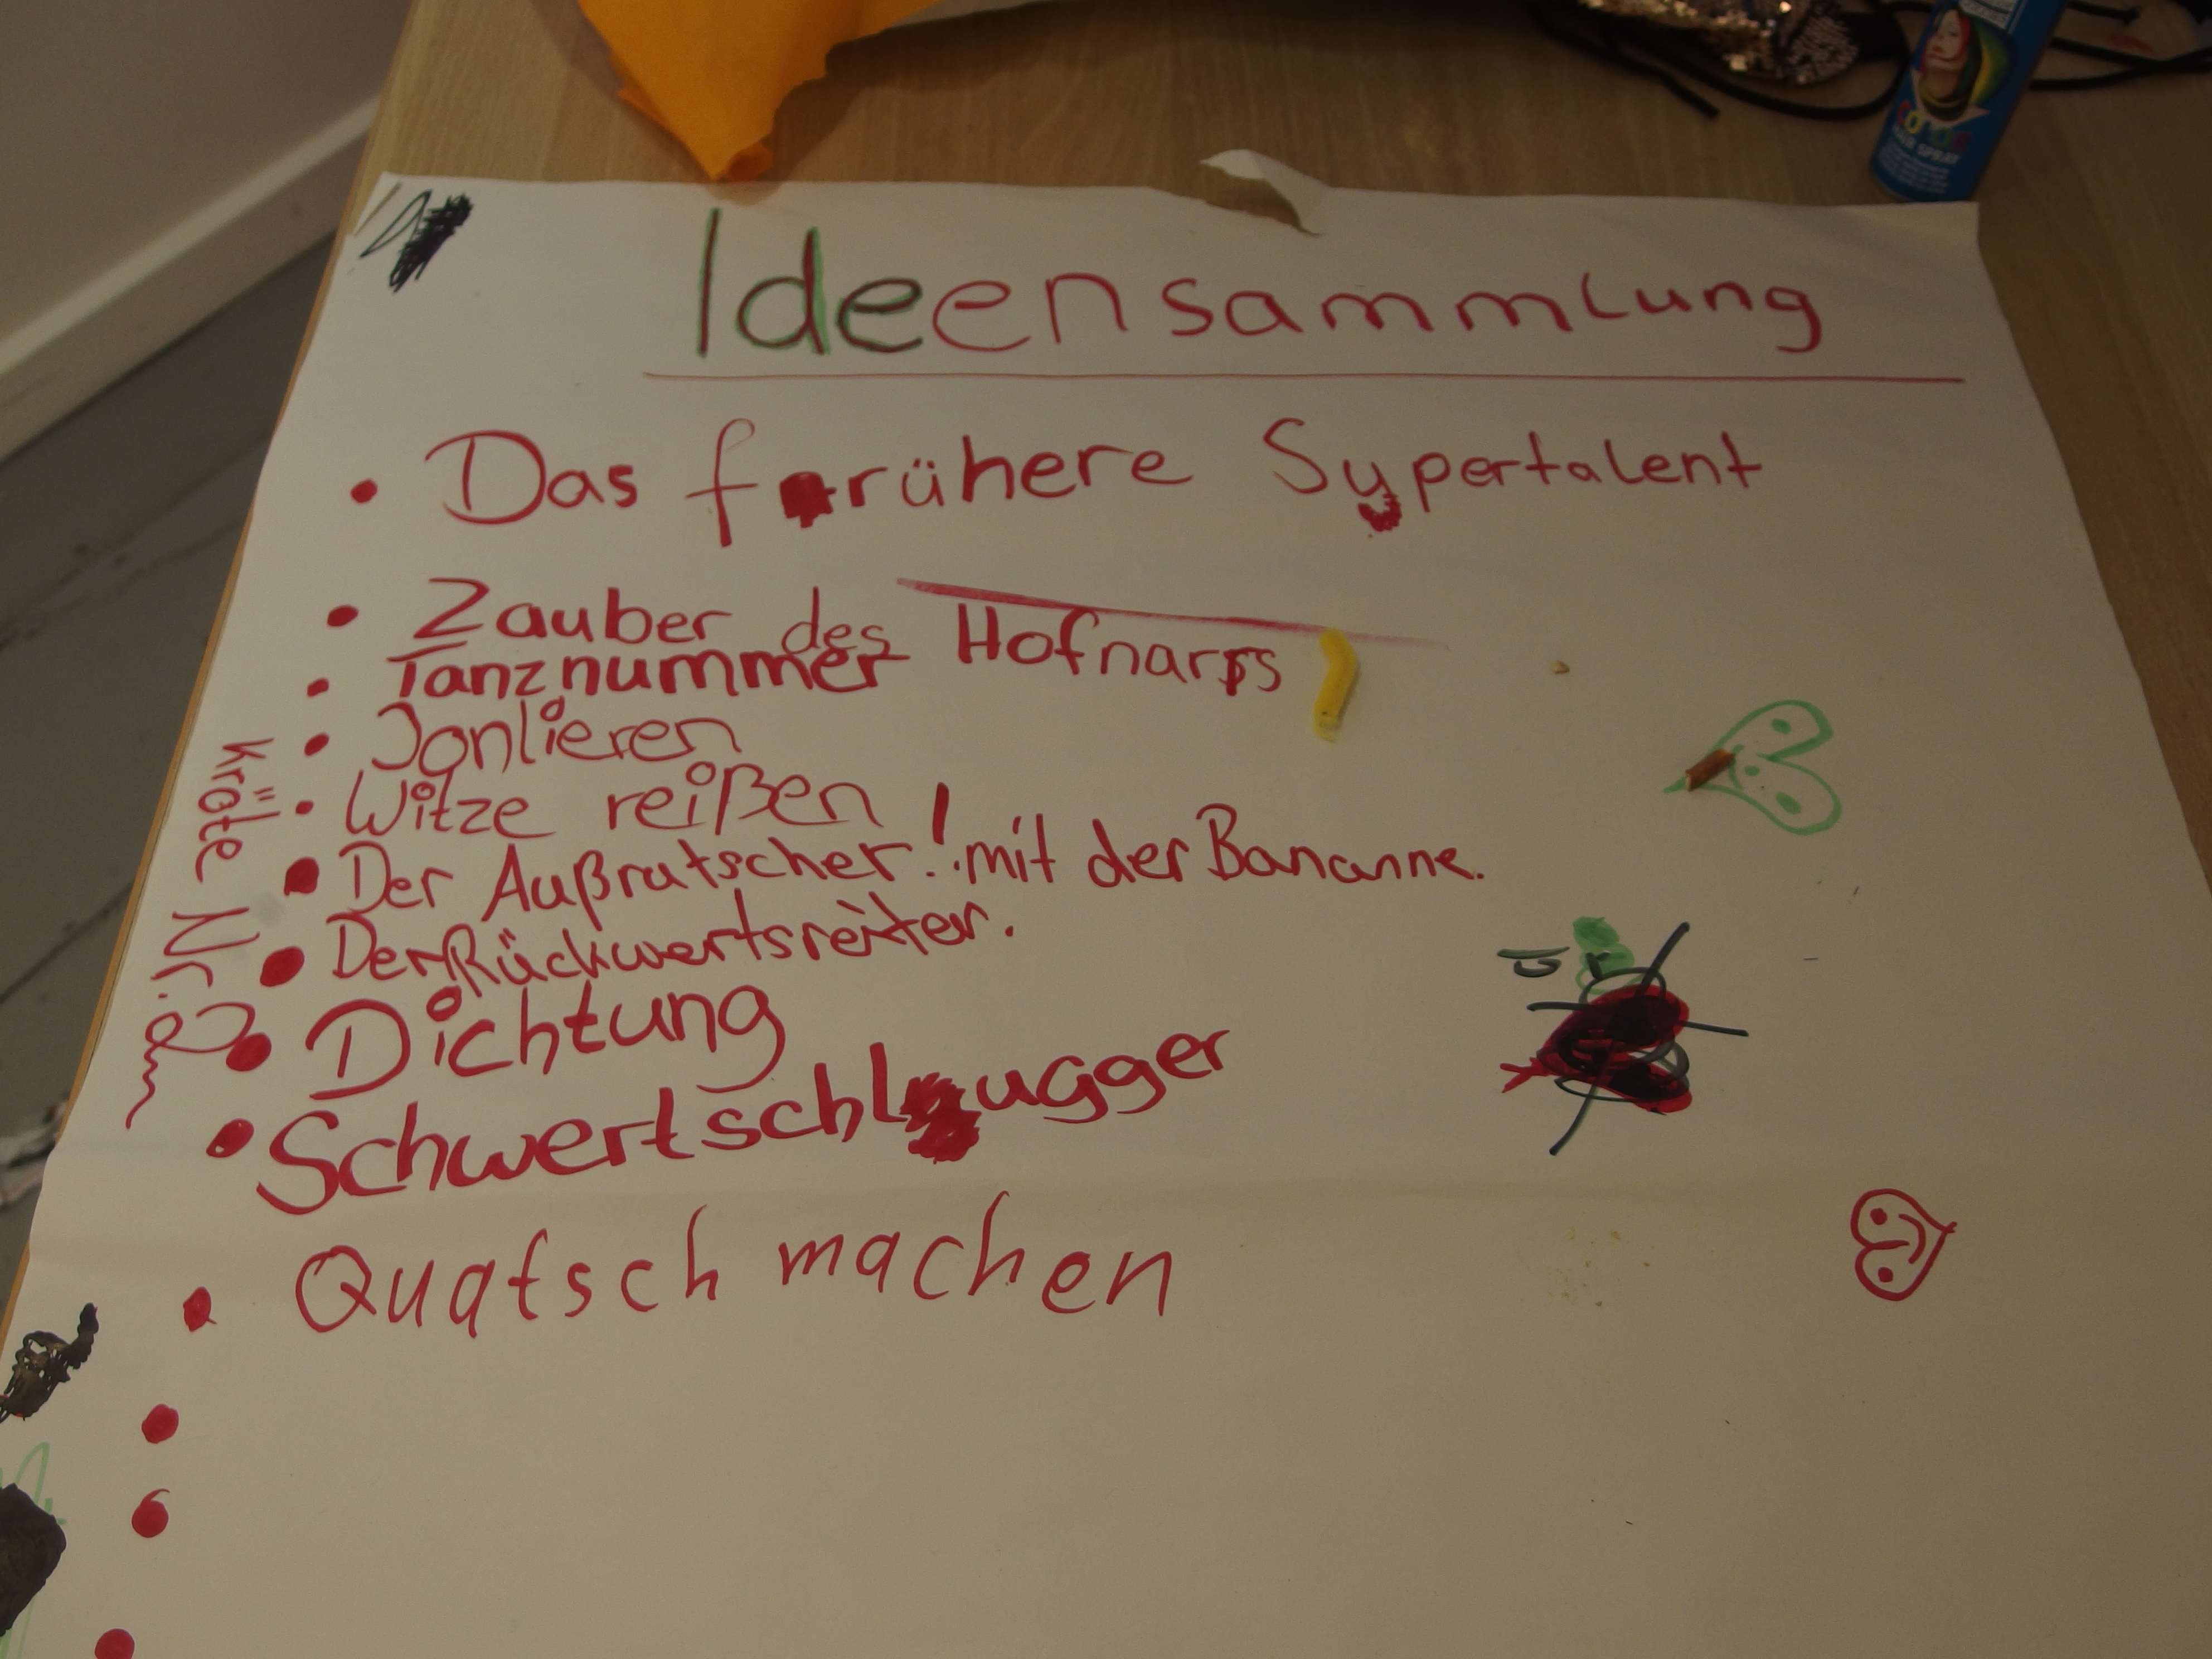 Ideensammlung
Das frühere Sypertalent
Zauber des Hofnarrs
Tanznummer
Jonlieren
Witze reißen
Der Außrutscher! mit der Bananne.
Der Rückwertsreiter.
Dichtung
Schwertschlugger
Quatsch machen
Kröte Nr.
COLOR
HAIR SPRAY